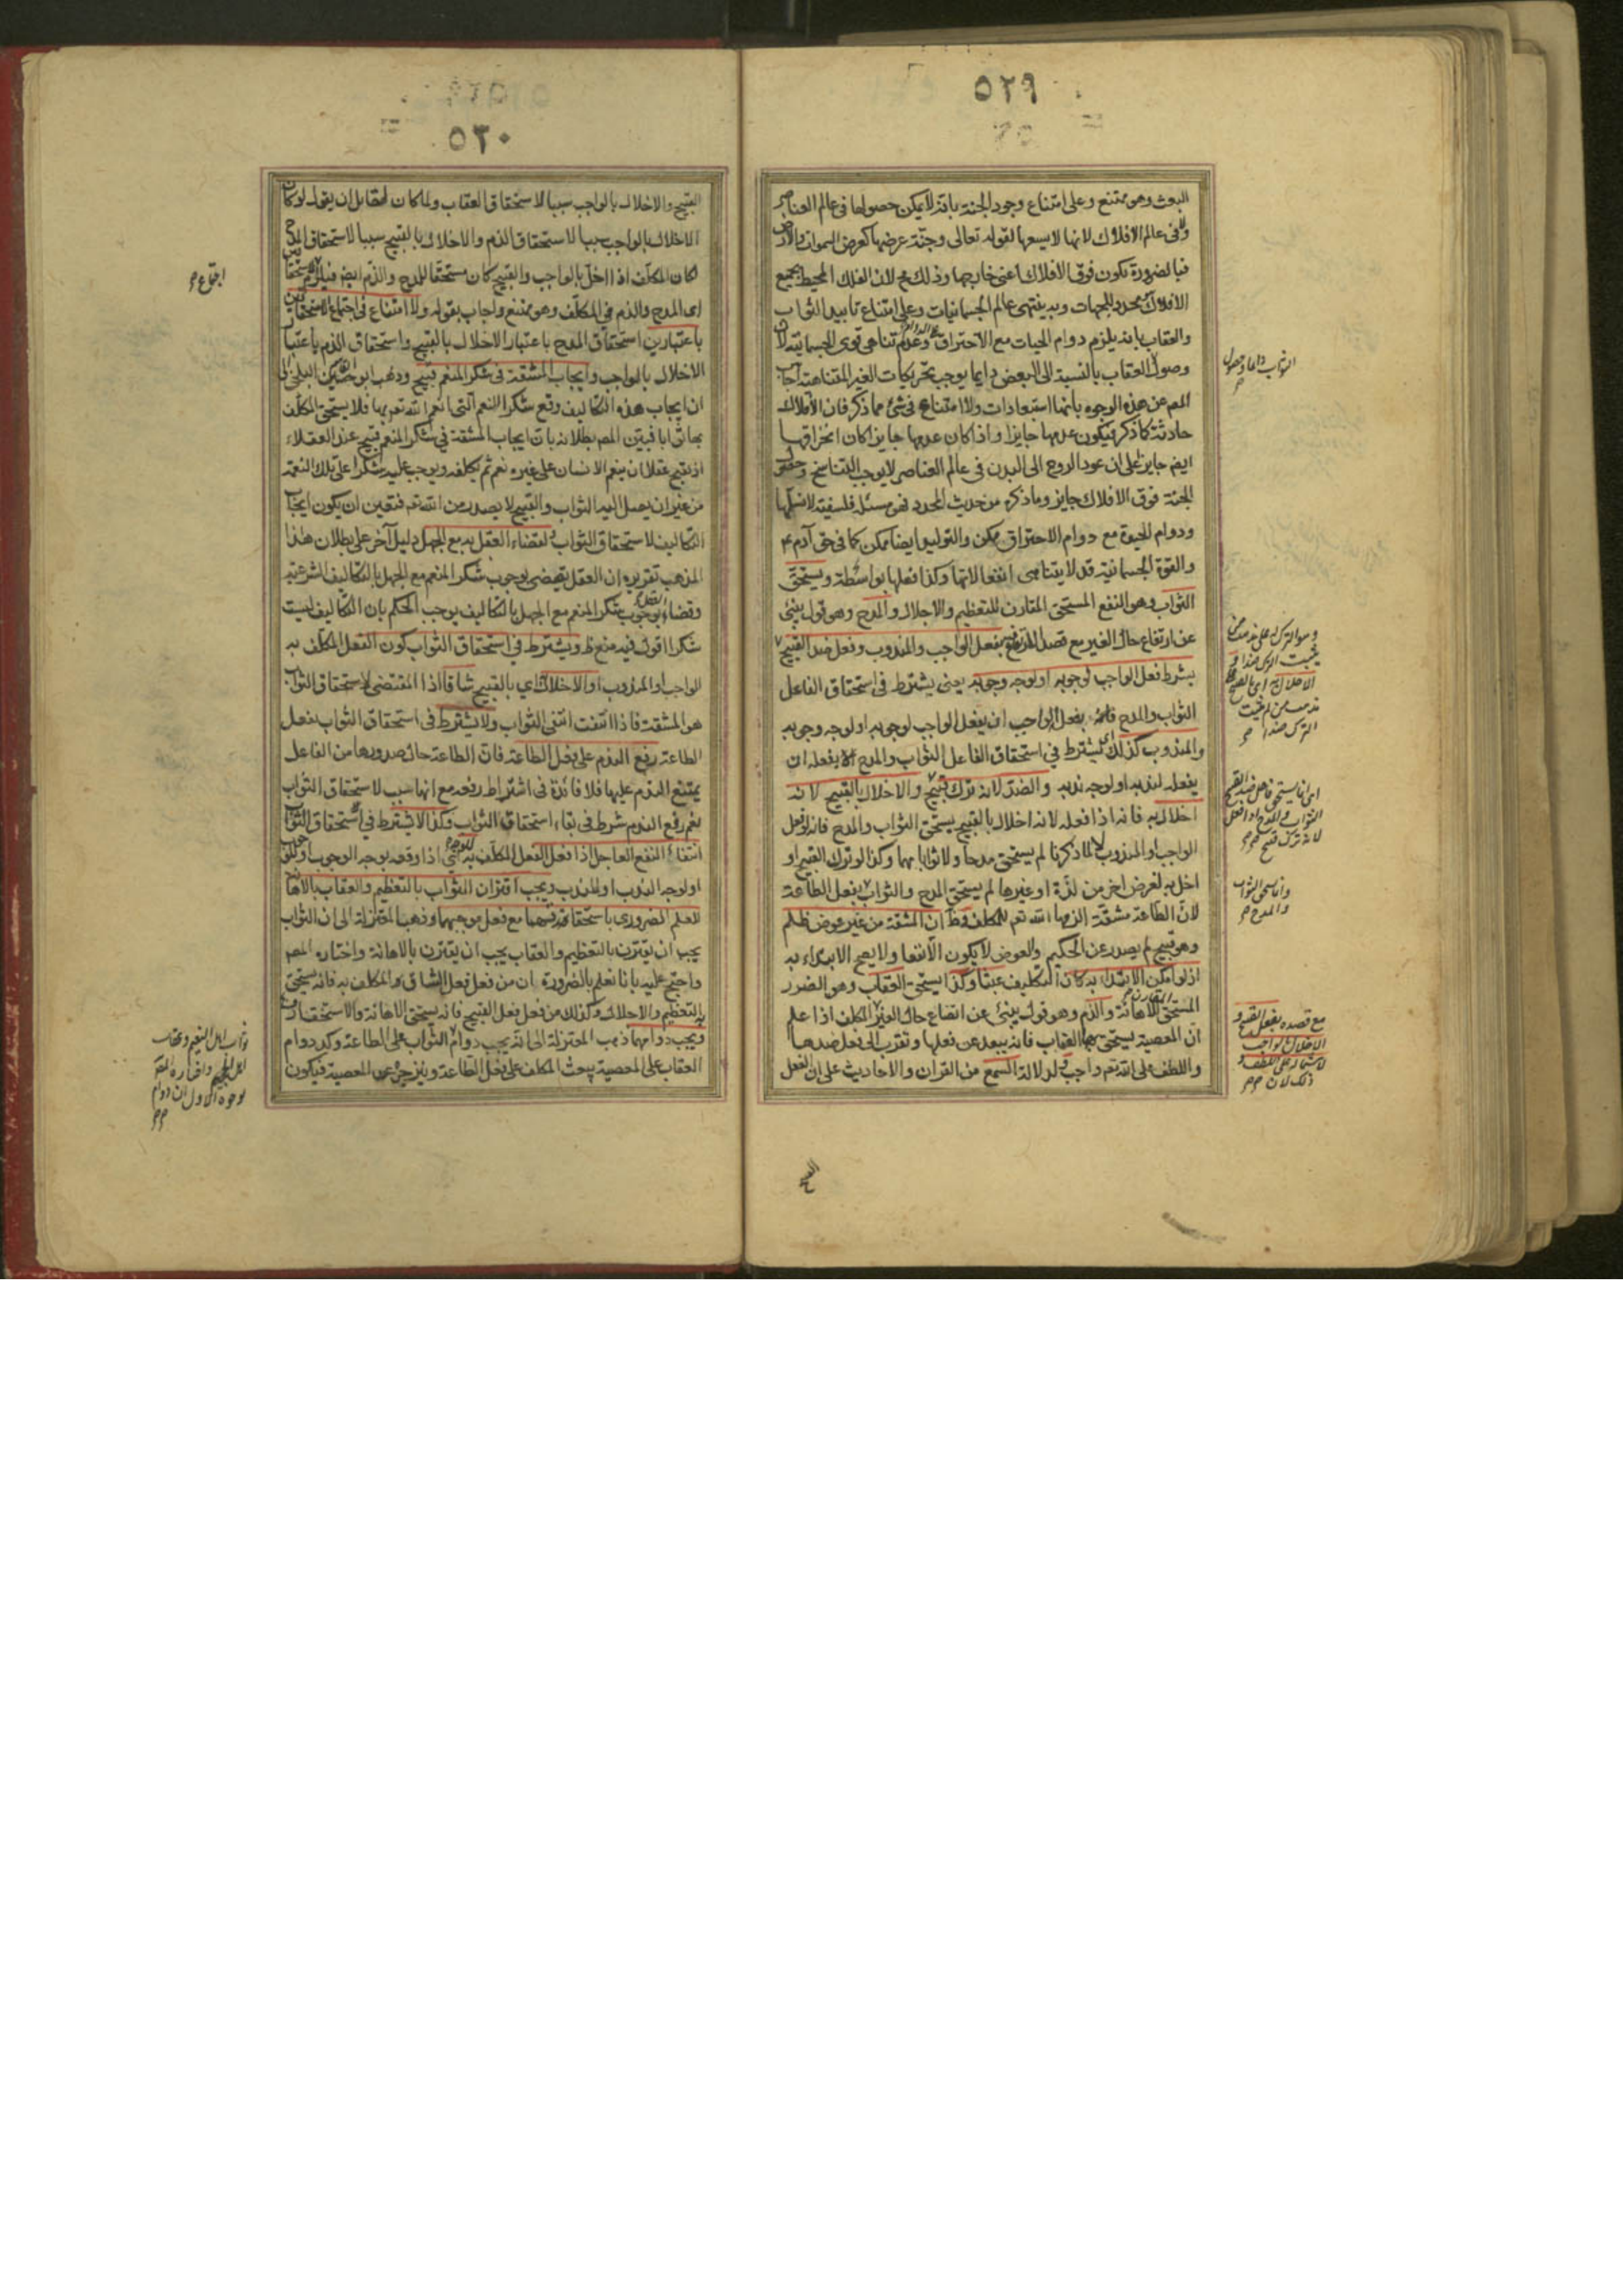 ٥٢٩
البعث وهو ممتنع وعلى امتناع وجود الجنة بانه لا يمكن حصولها فى عالم العناصر
ولا فى عالم الافلاك لانها لا يسعها لقوله تعالى وجنة عرضها كعرض السموات والارض
فبالضرورة تكون فوق الافلاك اعنى خارجها وذلك مح لان الفلك المحيط بجميع
الافلاك محدد للجهات وبه ينتهى عالم الجسمانيات وعلى امتناع تابيد الثواب
والعقاب بانه يلزم دوام الحيات مع الاحتراق وعدم تناهى قوى الجسمانية لان
وصول العقاب بالنسبة الى البعض دايما يوجب تحريكات الغير المتناهية اجاب
المص عن هذه الوجوه بأنها استبعادات ولا امتناع فى شئ مما ذكر فان الافلاك
حادثة كما ذكر فيكون عدمها جايزا واذا كان عدمها جايزا كان انخراقها
ايض جايزا على ان عود الروح الى البدن فى عالم العناصر لا يوجب التناسخ وحصول
الجنة فوق الافلاك جايز وما ذكره من حديث المحدد فهى مسئلة فلسفية لا نسلمها
ودوام الحيوة مع دوام الاحتراق ممكن والتوليد ايضا ممكن كما فى حق آدم ع
والقوة الجسمانية قد لا يتناهى انفعالاتها وكذا فعلها بواسطة ويستحق
الثواب وهو النفع المستحق المقارن للتعظيم والاجلال والمدح وهو قول ينبئ
عن ارتفاع حال الغير مع قصد الرفع بفعل الواجب والمندوب وفعل ضد القبيح
بشرط فعل الواجب لوجوبه او لوجه وجوبه يعنى يشترط فى استحقاق الفاعل
الثواب والمدح بفعل الواجب ان يفعل الواجب لوجوبه او لوجه وجوبه
والمندوب كذلك اى يشترط فى استحقاق الفاعل الثواب والمدح بفعله ان
يفعله لندبه او لوجه ندبه والضد لانه ترك قبيح والاخلال بالقبيح لانه
اخلال به فانه اذا فعله لانه اخلال بالقبيح يستحق الثواب والمدح فانه لو فعل
الواجب او المندوب لا لما ذكرنا لم يستحق مدحا ولا ثوابا بهما وكذا لو ترك القبيح او
اخل به لغرض اخر من لذة او غيرها لم يستحق المدح والثواب بفعل الطاعة
لان الطاعة مشقة الزمها الله تعم للمكلف وظ ان المشقة من غير عوض ظلم
وهو قبيح لم يصدر عن الحكيم والعوض لا يكون الا نفعا ولا يصح الابتداء به
اذ لو امكن الابتداء به كان التكليف عبثا وكذا يستحق العقاب وهو الضرر
المستحق المقارن للاهانة والذم وهو قول ينبئ عن اتضاع حال الغير المكلف اذا علم
ان المعصية يستحق بها العقاب فانه يبعد عن فعلها وتقرب الى فعل ضدها
واللطف على الله تعم واجب لدلالة السمع من القران والاحاديث على ان فعل
الثواب دائما وحصول
اى انما يستحق فاعل ضد القبيح
الثواب والمدح اذا فعل
لانه ترك قبيح
وانما يستحق الثواب
والمدح
مع قصده بفعل القبيح و
الاخلال بالواجب
لاشتماله على اللطف و
ذلك لان
٥٣٠
القبيح والاخلال بالواجب سببا لاستحقاق العقاب ولما كان لقائل ان يقول لو كان
الاخلال بالواجب سببا لاستحقاق الذم والاخلال بالقبيح سببا لاستحقاق المدح
لكان المكلف اذا اخل بالواجب والقبيح كان مستحقا للمدح والذم ايض فيلزم
اى المدح والذم فى المكلف وهو ممتنع واجاب بقوله ولا امتناع فى اجتماع الاستحقاقين
باعتبارين استحقاق المدح باعتبار الاخلال بالقبيح واستحقاق الذم باعتبار
الاخلال بالواجب وايجاب المشقة فى شكر المنعم قبيح وذهب ابو القسم البلخى الى
ان ايجاب هذه التكاليف وقع شكرا للنعم التى انعم الله تعم بها فلا يستحق المكلف
بها ثوابا فبين المص بطلانه بان ايجاب المشقة فى شكر المنعم قبيح عند العقلاء
اذ يقبح عقلا ان ينعم الانسان على غيره نعم ثم يكلفه ويوجب عليه شكرا على تلك النعمة
من غير ان يصل اليه الثواب والقبيح لا يصدر من الله تعم فتعين ان يكون ايجاب
التكاليف لاستحقاق الثواب ولقضاء العقل به مع الجهل دليل آخر على بطلان هذا
المذهب تقريره ان العقل يقضى بوجوب شكر المنعم مع الجهل بالتكاليف الشرعية
وقضاء العقل بوجوب شكر المنعم مع الجهل بالتكاليف يوجب الحكم بان التكاليف ليست
شكرا اقول فيه منع ظ ويشترط فى استحقاق الثواب كون الفعل المكلف به
الواجب او المندوب او الاخلال اى بالقبيح شاقا اذ المقتضى لاستحقاق الثواب
هو المشقة فاذا انتفت انتفى الثواب ولا يشترط فى استحقاق الثواب بفعل
الطاعة رفع الندم على فعل الطاعة فان الطاعة حال صدورها من الفاعل
يمتنع الندم عليها فلا فائدة فى اشتراط رفعه مع انها سبب لاستحقاق الثواب
نعم رفع الندم شرط فى بقاء استحقاق الثواب وكذا لا يشترط فى استحقاق الثواب
انتفاء النفع العاجل اذا فعل الفعل المكلف به اذا وقعه لوجه الوجوب
او لوجه الندب او المندب ويجب اقتران الثواب بالتعظيم والعقاب بالاهانة
للعلم الضرورى باستحقاقهما مع فعل موجبهما وذهب المعتزلة الى ان الثواب
يجب ان يقترن بالتعظيم والعقاب يجب ان يقترن بالاهانة واختاره المص
واحتج عليه بانا نعلم بالضرورة ان من فعل الفعل الشاق المكلف به فانه يستحق
التعظيم والاجلال وكذلك من فعل فعل القبيح فانه يستحق الاهانة والاستخفاف
ويجب دوامهما ذهب المعتزلة الى انه يجب دوام الثواب على الطاعة وكذا دوام
العقاب على المعصية يبعث المكلف على فعل الطاعة ويزجره عن المعصية فيكون
اجتماع